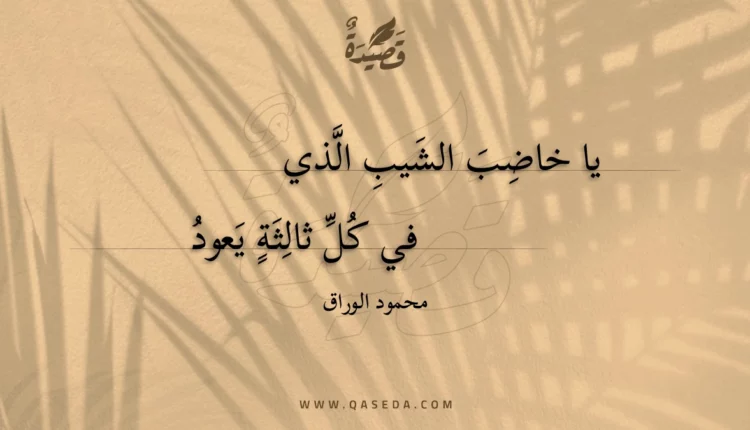 قَصِيْدَةٌ
يا خاضِبَ الشَيبِ الَّذي
في كُلِّ ثالِثَةٍ يَعودُ
محمود الوراق
WWW.QASEDA.COM